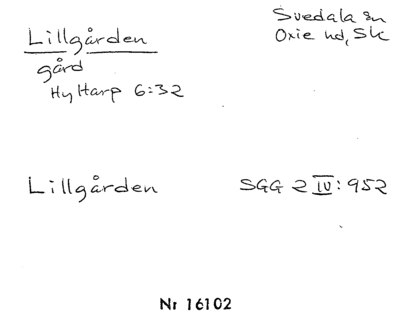 Lillgården
Svedala sn
Oxie hd, Sk
gård
Hyltarp 6:32
Lillgården
SGG 2 IV: 952
Nr 16102